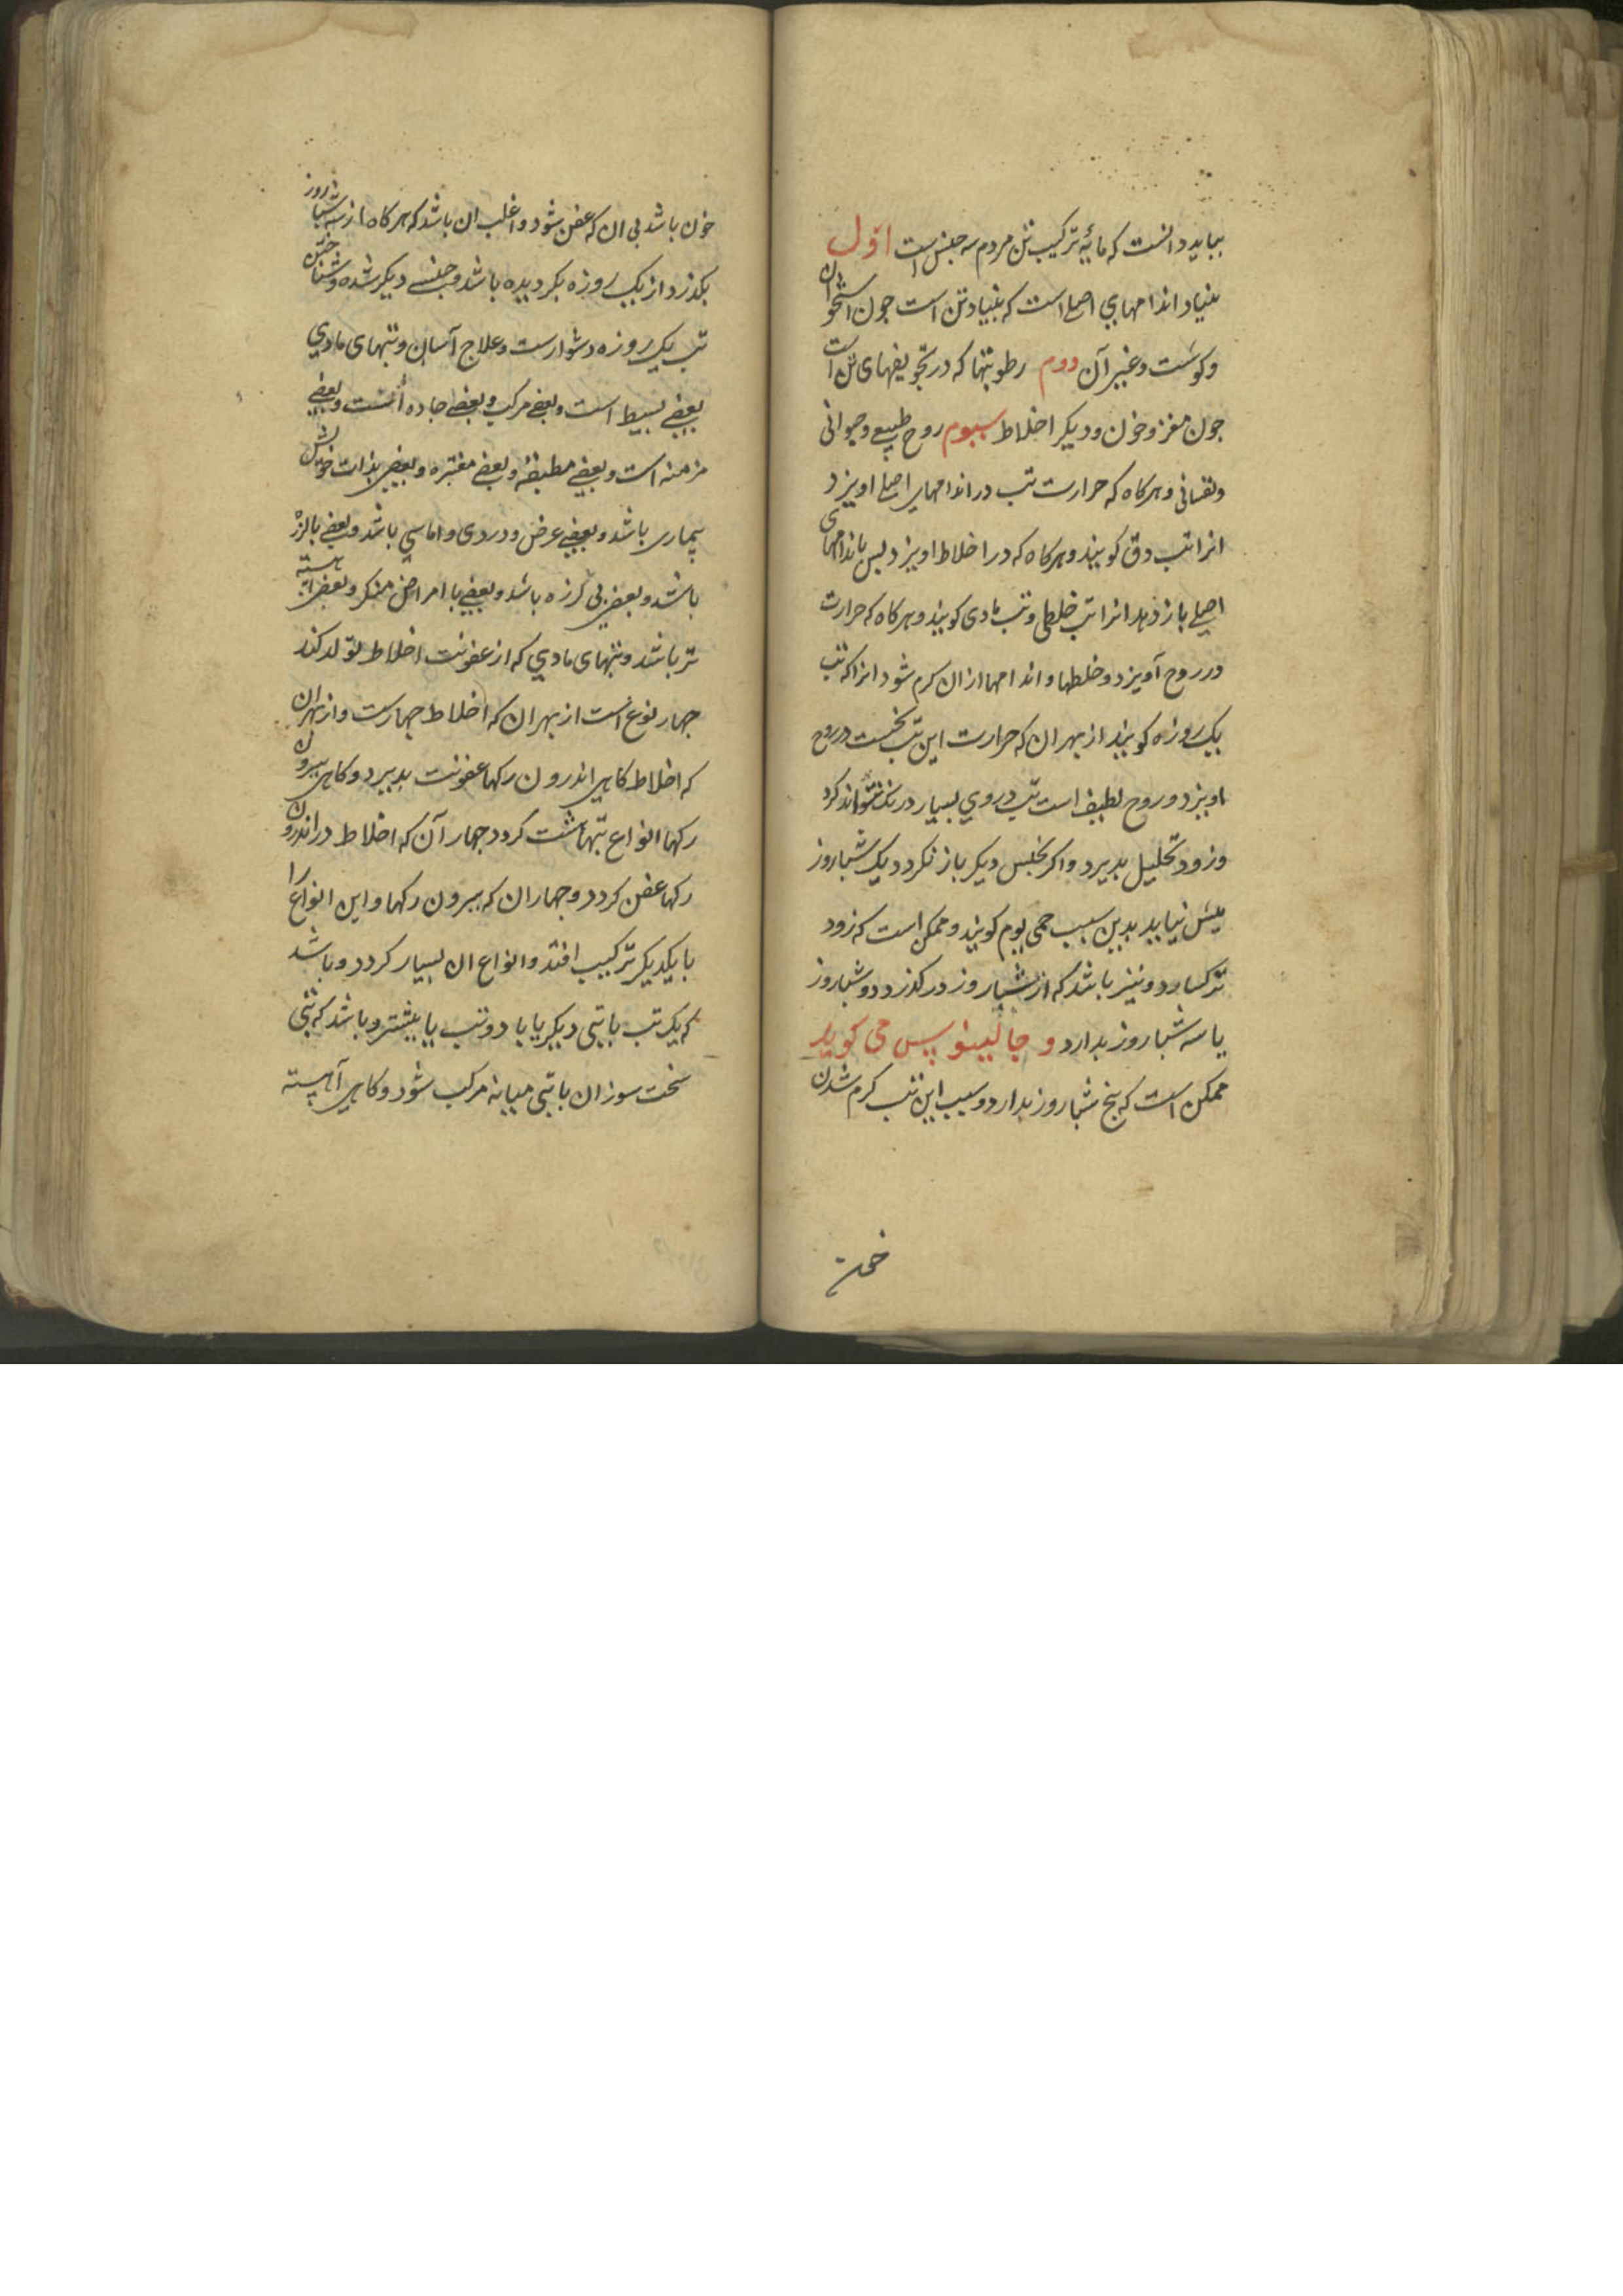 ببايد دانست که مائيه ترکيب تن مردم سه جنس است اوّل
بنياد اندامهاي اصلي است که بنياد تن است جون استخوان
وکوشت وغير آن دوم رطوبتها که در تجويفهاي تن است
جون مغز وخون وديکر اخلاط سيوم روح طبيعي وحيواني
ونفساني وهرکاه که حرارت تب در اندامهاي اصلي اويزد
انرا تب دق کويند وهرکاه که در اخلاط اويزد پس باندامهاي
اصلي باز دهد انرا تب خلطي وتب مادي کويند وهرکاه که حرارت
در روح آويزد وخلطها واندامها ازان کرم شود انرا که تب
يک روزه کويند از بهر ان که حرارت اين تب نخست در روح
اويزد وروح لطيف است تب در وي بسيار درنک نتواند کرد
وزود تحليل بديرد واکر بجنس ديکر باز نکردد يک شباروز
بيش نيايد بدين سبب حمي يوم کويند وممکن است که زود
تر کسارد ونيز باشد که از شباروز درکذرد ودو شباروز
يا سه شباروز بدارد و جالينوس مي کويد
ممکن است که پنج شباروز بدارد وسبب اين تب کرم شدن
خون باشد بي ان که عفن شود واغلب ان باشد که هرکاه از سه شباروز
بکذرد از يک روزه بکرديده باشد وجنسي ديکر شده وشناختن
تب يک روزه دشوارست وعلاج آسان وتبهاي مادي
بعضي بسيط است وبعضي مرکب وبعضي حاده است وبعضي
مزمنه است وبعضي مطبقه وبعضي مفتره وبعضي بذات خويش
بيماري باشد وبعضي عرض ودردي واماسي باشد وبعضي بالرز
باشد وبعضي بي لرزه باشد وبعضي با امراض منکر وبعضي آهسته
تر باشد وتبهاي مادي که از عفونت اخلاط تولد کند
جهار نوع است از بهر ان که اخلاط جهارست واز بهر ان
که اخلاط کاهي اندرون رکها عفونت بديرد وکاهي بيرون
رکها انواع تبها هشت کردد جهار آن که اخلاط در اندرون
رکها عفن کردد وجهار ان که بيرون رکها واين انواع را
با يکديکر ترکيب افتد وانواع ان بسيار کردد وباشد
که يک تب با تبي ديکر يا با دو تب يا بيشتر وباشد که تبي
سخت سوزان با تبي ميانه مرکب شود وکاهي آهسته